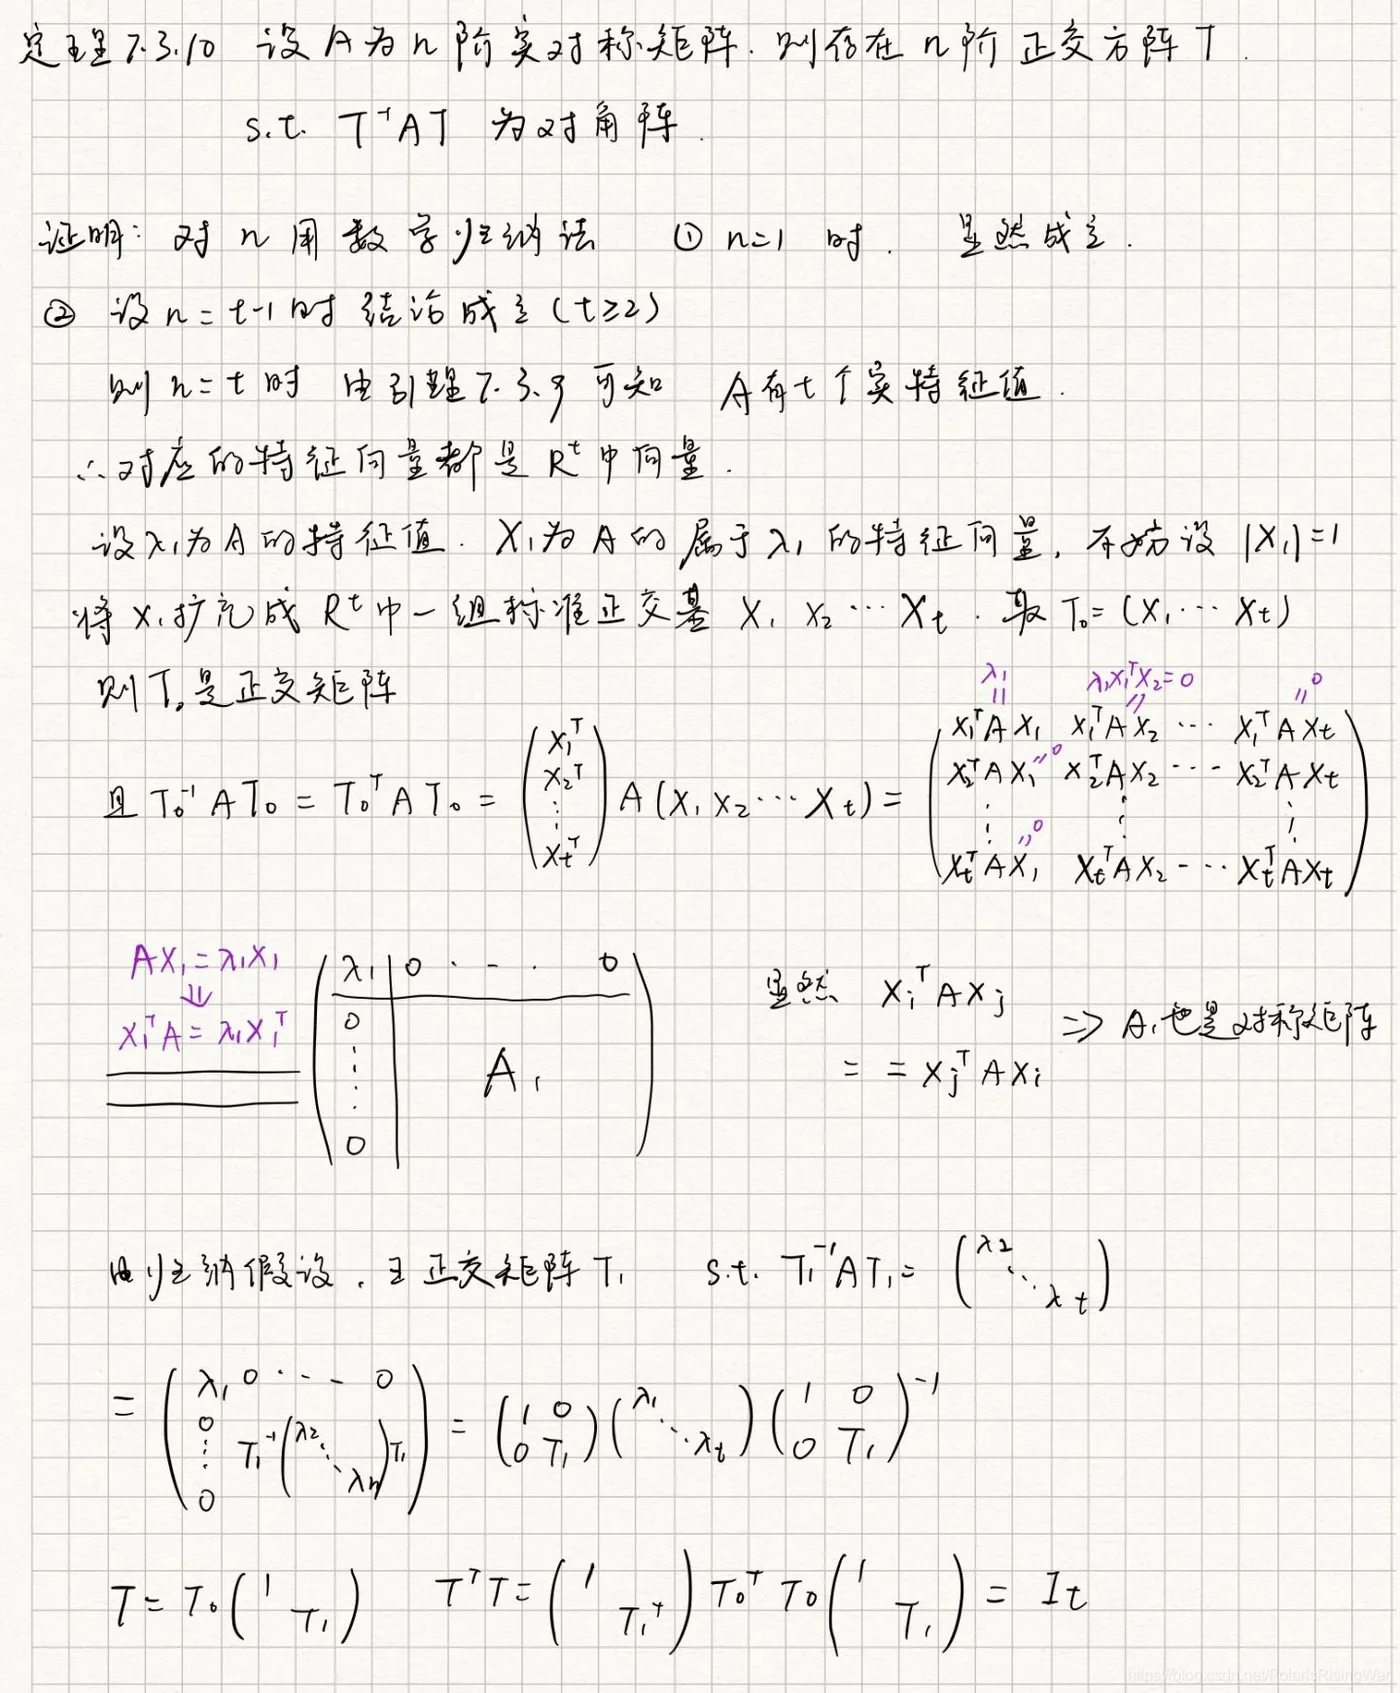 定理7.3.10 设A为n阶实对称矩阵.则存在n阶正交方阵T.
s.t. T⁻¹AT 为对角阵.
证明:对n用数学归纳法 ① n=1 时. 显然成立.
② 设n=t-1时结论成立(t≥2)
则n=t时 由引理7.3.9可知 A有t个实特征值.
∴对应的特征向量都是Rᵗ中向量.
设λ₁为A的特征值. X₁为A的属于λ₁的特征向量,不妨设|X₁|=1
将X₁扩充成Rᵗ中一组标准正交基 X₁ X₂ ⋯ Xₜ. 取T₀=(X₁⋯Xₜ)
则T₀是正交矩阵
λ₁ λ₁X₁ᵀX₂=0 0
= = =
且T₀⁻¹AT₀=T₀ᵀAT₀=(X₁ᵀ X₂ᵀ ⋮ Xₜᵀ)A(X₁X₂⋯Xₜ)=
X₁ᵀAX₁ X₁ᵀAX₂ ⋯ X₁ᵀAXₜ
X₂ᵀAX₁ =0 X₂ᵀAX₂ ⋯ X₂ᵀAXₜ
⋮ =0 ⋮ ⋮
XₜᵀAX₁ XₜᵀAX₂ ⋯ XₜᵀAXₜ
AX₁=λ₁X₁
⇓
X₁ᵀA=λ₁X₁ᵀ
λ₁ 0 ⋯ 0
0
⋮ A₁
0
显然 XᵢᵀAXⱼ
= = XⱼᵀAXᵢ
⇒ A₁也是对称矩阵
由归纳假设,∃正交矩阵T₁ s.t. T₁⁻¹AT₁=(λ₂ ⋱ λₜ)
=(λ₁ 0 ⋯ 0
0
⋮ T₁⁻¹(λ₂ ⋱ λₙ)T₁
0)
=(1 0 0 T₁)(λ₁ ⋱ λₜ)(1 0 0 T₁)⁻¹
T=T₀(1 T₁) TᵀT=(1 T₁ᵀ)T₀ᵀT₀(1 T₁)=Iₜ
https://blog.csdn.net/PolarisRisingWar